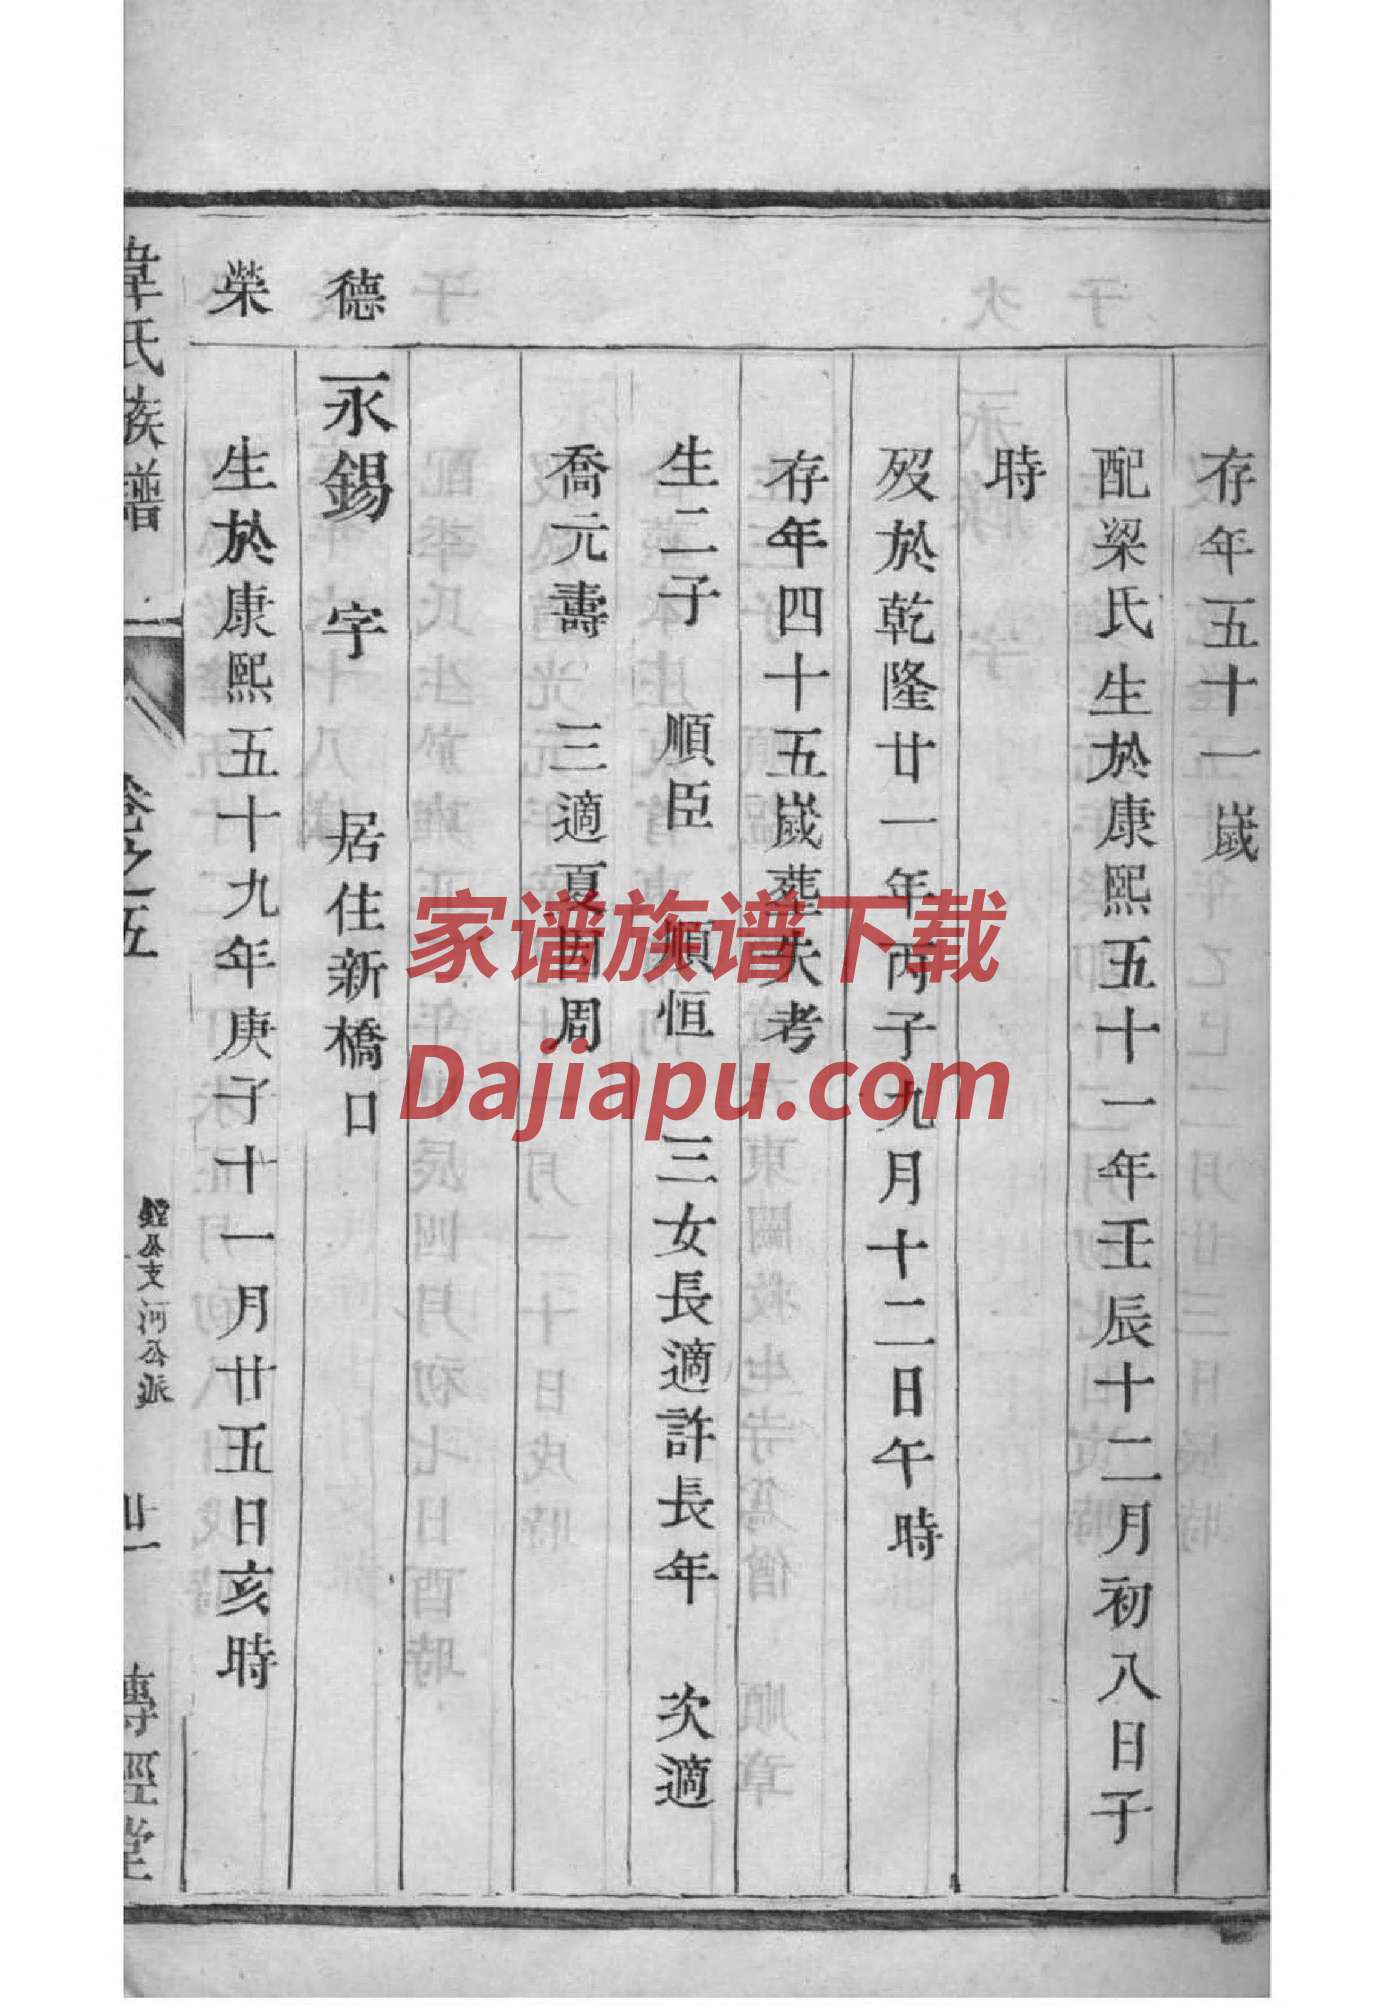 存年五十一歲
配梁氏生於康熙五十一年壬辰十二月初八日子
時
歿於乾隆廿一年丙子九月十二日午時
存年四十五歲葬失考
生二子 順臣 順恒 三女長適許長年 次適
喬元壽 三適夏因周
德 永錫 字 居住新橋口
榮 生於康熙五十九年庚子十一月廿五日亥時
韋氏族譜 卷之五 鏜公支河公派 廿一 傳經堂
家谱族谱下载
Dajiapu.com